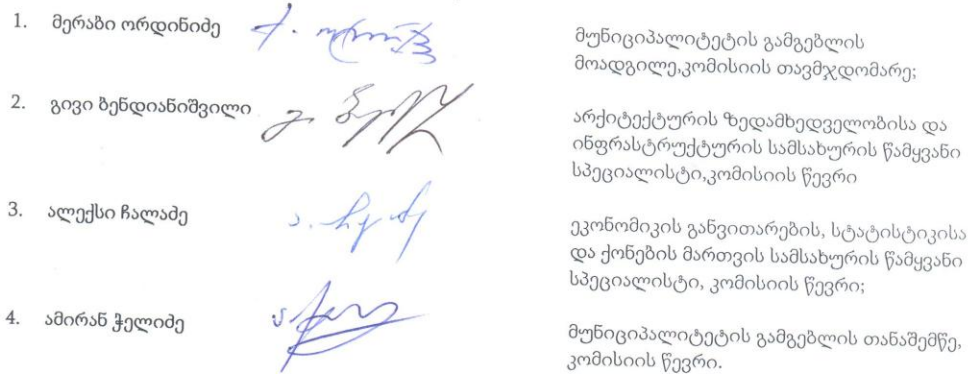 1. მერაბი ორდინიძე
მუნიციპალიტეტის გამგებლის
მოადგილე,კომისიის თავმჯდომარე;
2. გივი ბენდიანიშვილი
არქიტექტურის ზედამხედველობისა და
ინფრასტრუქტურის სამსახურის წამყვანი
სპეციალისტი,კომისიის წევრი
3. ალექსი ჩალაძე
ეკონომიკის განვითარების, სტატისტიკისა
და ქონების მართვის სამსახურის წამყვანი
სპეციალისტი, კომისიის წევრი;
4. ამირან ჭელიძე
მუნიციპალიტეტის გამგებლის თანაშემწე,
კომისიის წევრი.